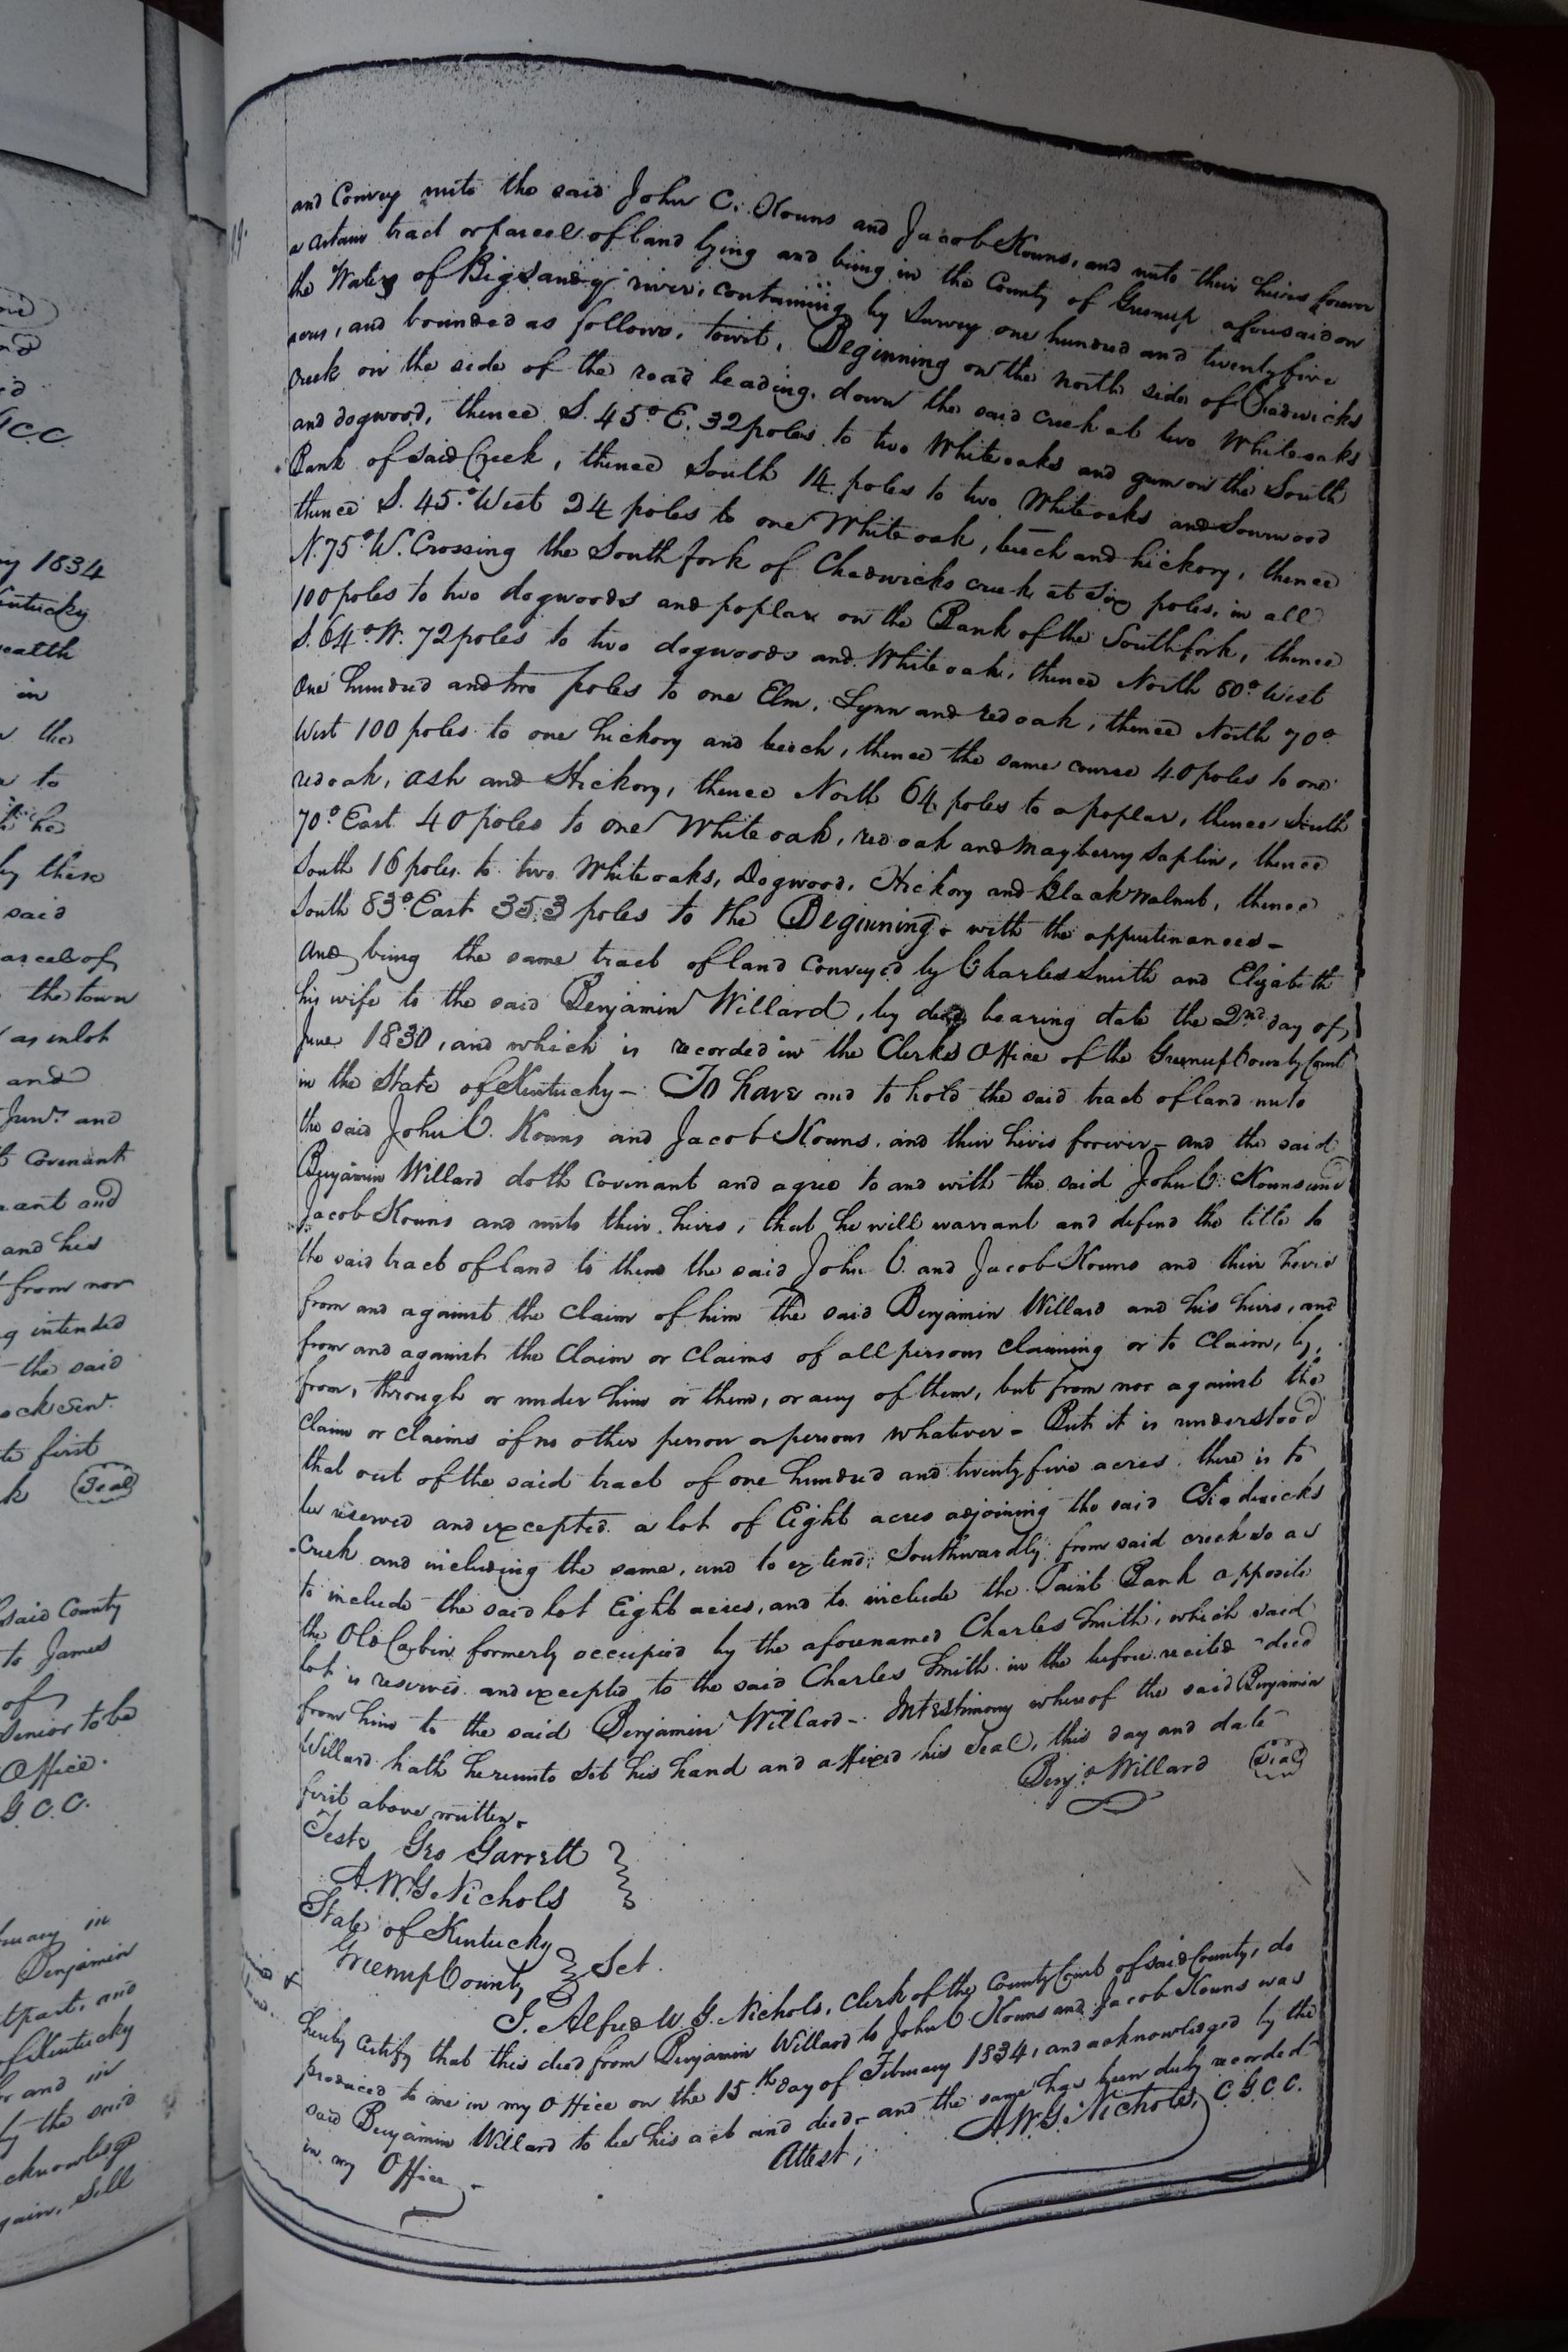 and Convey unto the said John C. Kouns and Jacob Kouns, and unto their heirs forever
a certain tract or parcel of land lying and being in the County of Greenup aforesaid on
the Waters of Big Sandy river, containing by Survey one hundred and twenty five
acres, and bounded as follows, towit, Beginning on the north side of Chadwicks
Creek on the side of the road leading down the said creek at two Whiteoaks
and dogwood, thence S. 45° E. 32 poles to two Whiteoaks and gum on the South
Bank of said Creek, thence South 14 poles to two Whiteoaks and Sourwood
thence S. 45° West 24 poles to one White oak, beech and hickory, thence
N. 75° W. Crossing the South fork of Chadwicks creek at six poles, in all
100 poles to two dogwoods and poplar on the Bank of the South fork, thence
S. 64° W. 72 poles to two dogwoods and White oak, thence North 60° West
One hundred and two poles to one Elm, Lynn and red oak, thence North 70°
West 100 poles to one hickory and beech, thence the same course 40 poles to one
red oak, ash and Hickory, thence North 64 poles to a poplar, thence South
70° East 40 poles to one White oak, red oak and mayberry saplin, thence
South 16 poles to two Whiteoaks, Dogwood, Hickory and black walnut, thence
South 83° East 353 poles to the Beginning. with the appurtinances –
And being the same tract of land conveyed by Charles Smith and Elizabeth
his wife to the said Benjamin Willard, by deed bearing date the 2nd day of
June 1830, and which is recorded in the Clerks Office of the Greenup County Court
in the State of Kentucky – To have and to hold the said tract of land unto
the said John C. Kouns and Jacob Kouns, and their heirs forever – and the said
Benjamin Willard doth covinant and agree to and with the said John C. Kouns and
Jacob Kouns and unto their heirs, that he will warrant and defend the title to
the said tract of land to them the said John C. and Jacob Kouns and their heirs
from and against the claim of him the said Benjamin Willard and his heirs, and
from and against the claim or claims of all persons claiming or to claim, by,
from, through or under him or them, or any of them, but from nor against the
claim or claims of no other person or persons whatever – But it is understood
that out of the said tract of one hundred and twenty five acres there is to
be reserved and excepted a lot of Eight acres adjoining the said Chadwicks
Creek and including the same, and to extend Southwardly from said creek so as
to include the said lot Eight acres, and to include the Paint Bank opposite
the Old Cabin formerly occupied by the aforenamed Charles Smith, which said
lot is reserved and excepted to the said Charles Smith in the before recited deed
from him to the said Benjamin Willard – In testimony whereof the said Benjamin
Willard hath hereunto set his hand and affixed his Seal, this day and date
first above written. Benjn Willard (Seal)
Teste Geo Garrett
A. W. G. Nichols
State of Kentucky
Greenup County Sct.
I. Alfred W. G. Nichols, Clerk of the County Court of said County, do
hereby certify that this deed from Benjamin Willard to John C. Kouns and Jacob Kouns was
produced to me in my Office on the 15th day of February 1834, and acknowledged by the
said Benjamin Willard to be his act and deed – and the same has been duly recorded
in my Office.
Attest, A. W. G. Nichols, C. G. C. C.